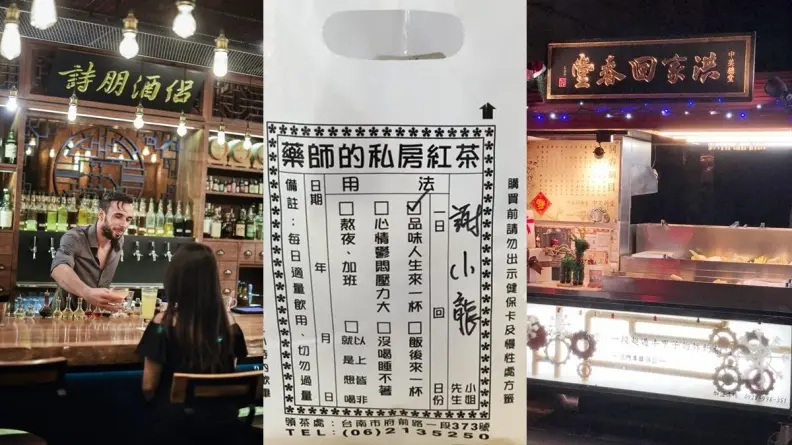 詩朋酒侶
藥師的私房紅茶
購買前請勿出示健保卡及慢性處方籤
謝小龍
小姐
先生
一日 回 日份
用法
☑品味人生來一杯
□飯後來一杯
□心情鬱悶壓力大
□沒喝睡不著
□熬夜、加班
□以上皆非
就是想喝
日期 年 月 日
備註：每日適量飲用、切勿過量
領茶處：台南市府前路一段373號
TEL:(06)2135250
洪家回春堂